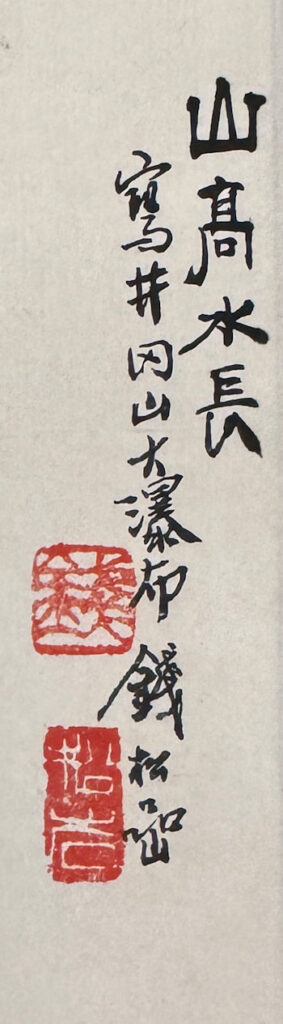 山髙水長
寫井冈山大瀑布 錢松喦
錢